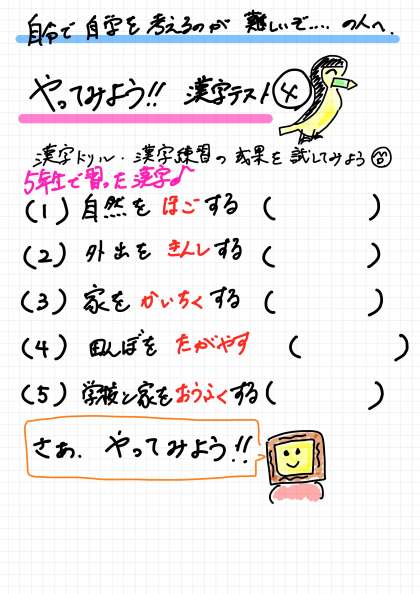 自分で自学を考えるのが難しいぞ....の人へ.
やってみよう!! 漢字テスト④
漢字ドリル・漢字練習の成果を試してみよう
5年生で習った漢字♪
(1) 自然を ほごする ( )
(2) 外出を きんしする ( )
(3) 家を かいちくする ( )
(4) 田んぼを たがやす ( )
(5) 学校と家をおうふくする( )
さあ. やってみよう!!